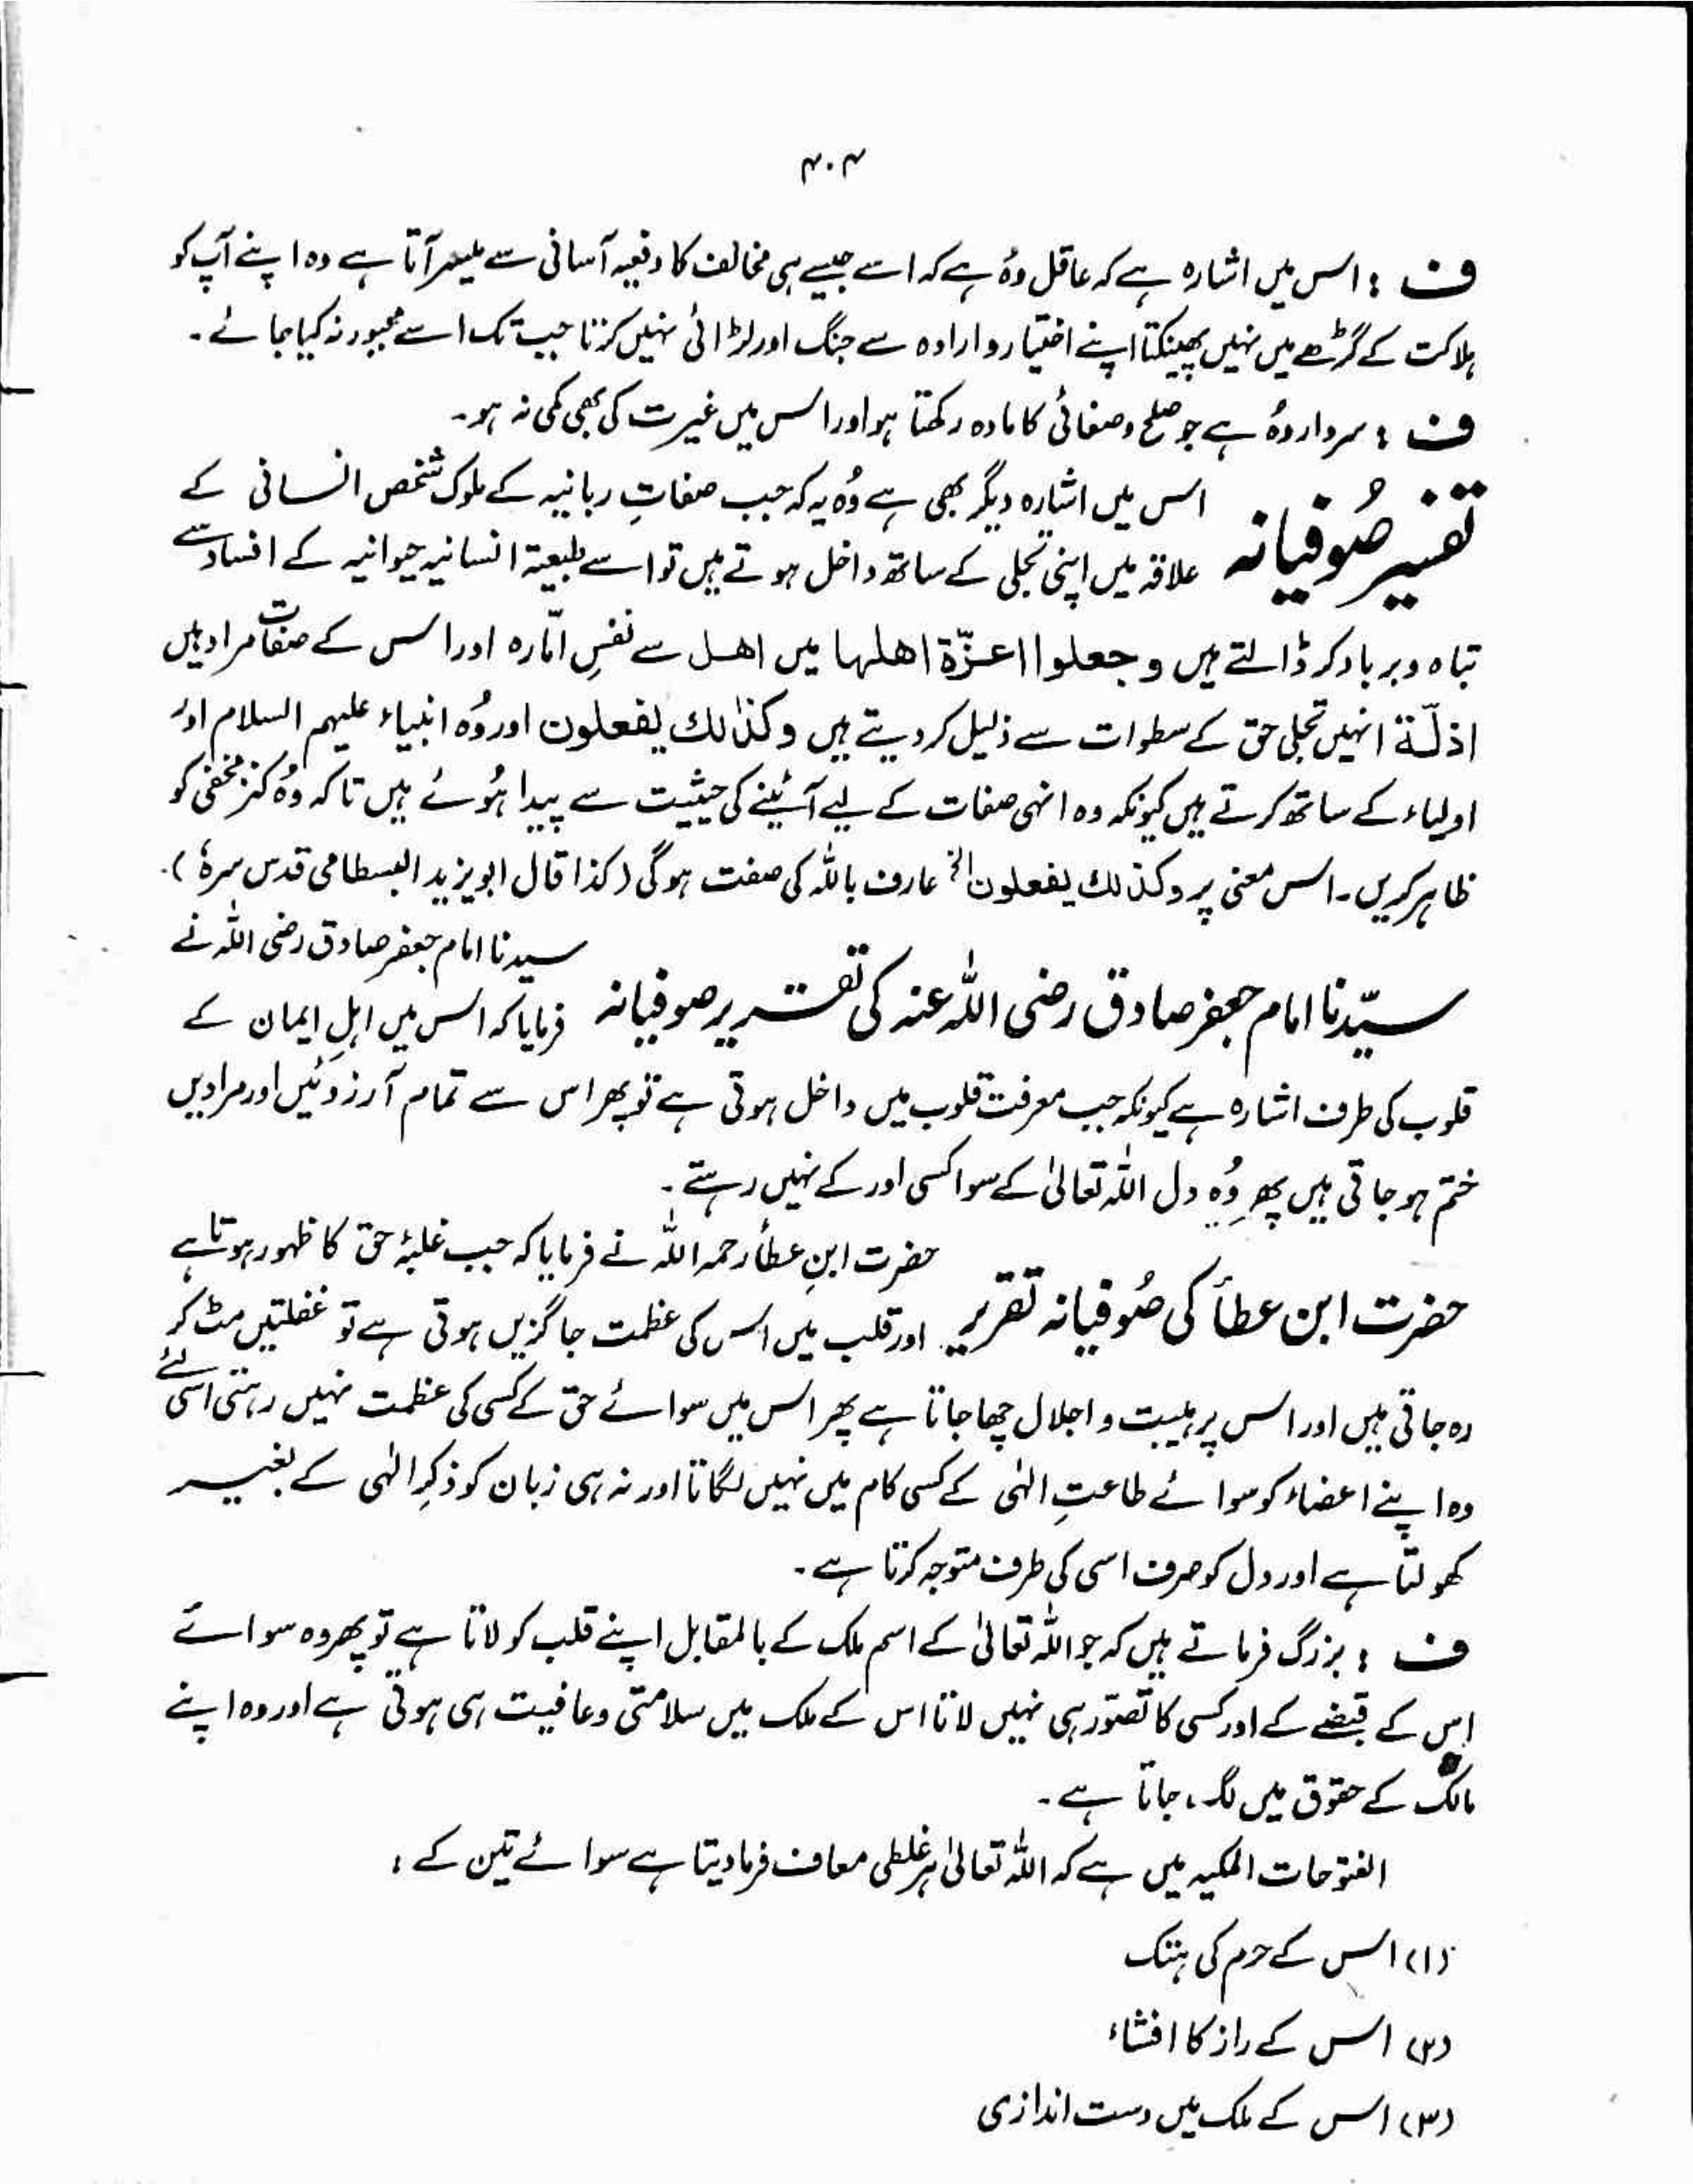 ۴۰۴
ف : اس میں اشارہ ہے کہ عاقل وُہ ہے کہ اسے جیسے ہی مخالف کا دفعیہ آسانی سے میسر آتا ہے وہ اپنے آپ کو
ہلاکت کے گڑھے میں نہیں پھینکتا اپنے اختیار و ارادہ سے جنگ اور لڑائی نہیں کرتا جب تک اسے مجبور نہ کیا جائے۔
ف : سردار وُہ ہے جو صلح و صفائی کا مادہ رکھتا ہو اور اس میں غیرت کی بھی کمی نہ ہو۔
تفسیر صُوفیانہ
اس میں اشارہ دیگر بھی ہے وُہ یہ کہ جب صفاتِ ربانیہ کے ملوک شخص انسانی کے
علاقہ میں اپنی تجلی کے ساتھ داخل ہوتے ہیں تو اسے طبیعۃ انسانیہ حیوانیہ کے افساد سے
تباہ و برباد کر ڈالتے ہیں وجعلوا اعزّة اھلہا میں اھل سے نفسِ امّارہ اور اس کے صفات مراد ہیں
اذلّة انہیں تجلی حق کے سطوات سے ذلیل کر دیتے ہیں وکذٰلك یفعلون اور وُہ انبیاء علیہم السلام اور
اولیاء کے ساتھ کرتے ہیں کیونکہ وہ انہی صفات کے لیے آئینے کی حیثیت سے پیدا ہُوئے ہیں تاکہ وُہ کنز مخفی کو
ظاہر کریں۔ اس معنی پر وکذلك یفعلون الخ عارف باللہ کی صفت ہوگی (کذا قال ابو یزید البسطامی قدس سرہٗ)۔
سیّدنا امام جعفر صادق رضی اللہ عنہ کی تقریر صوفیانہ
سیدنا امام جعفر صادق رضی اللہ نے
فرمایا کہ اس میں اہلِ ایمان کے
قلوب کی طرف اشارہ ہے کیونکہ جب معرفت قلوب میں داخل ہوتی ہے تو پھر اس سے تمام آرزوئیں اور مرادیں
ختم ہو جاتی ہیں پھر وُہ دل اللہ تعالیٰ کے سوا کسی اور کے نہیں رہتے۔
حضرت ابن عطاؔ کی صُوفیانہ تقریر
حضرت ابنِ عطاؔ رحمہ اللہ نے فرمایا کہ جب غلبۂ حق کا ظہور ہوتا ہے
اور قلب میں اس کی عظمت جاگزیں ہوتی ہے تو غفلتیں مٹ کر
رہ جاتی ہیں اور اس پر ہیبت و اجلال چھا جاتا ہے پھر اس میں سوائے حق کے کسی کی عظمت نہیں رہتی اسی لئے
وہ اپنے اعضاء کو سوائے طاعتِ الٰہی کے کسی کام میں نہیں لگاتا اور نہ ہی زبان کو ذکرِ الٰہی کے بغیر
کھولتا ہے اور دل کو صرف اسی کی طرف متوجہ کرتا ہے۔
ف : بزرگ فرماتے ہیں کہ جو اللہ تعالیٰ کے اسم ملک کے بالمقابل اپنے قلب کو لاتا ہے تو پھر وہ سوائے
اس کے قبضے کے اور کسی کا تصوّر ہی نہیں لاتا اس کے ملک میں سلامتی و عافیت ہی ہوتی ہے اور وہ اپنے
مالک کے حقوق میں لگ جاتا ہے۔
الفتوحات المکیہ میں ہے کہ اللہ تعالیٰ ہر غلطی معاف فرما دیتا ہے سوائے تین کے :
(۱) اس کے حرم کی ہتک
(۲) اس کے راز کا افشاء
(۳) اس کے ملک میں دست اندازی